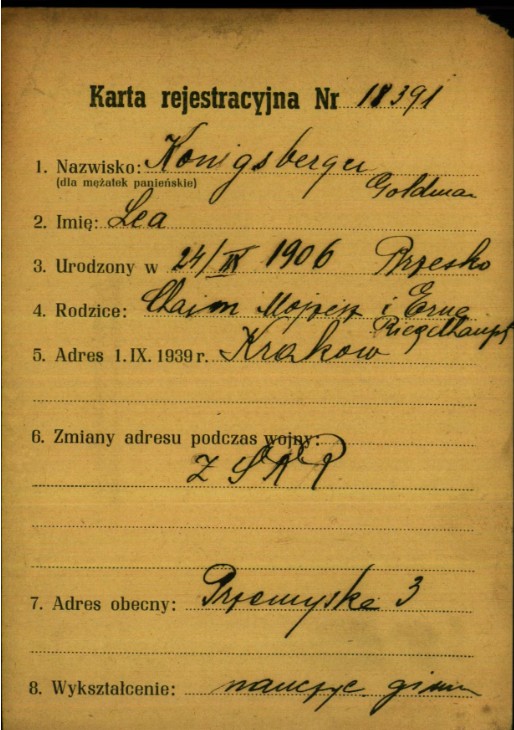 Karta rejestracyjna Nr 18391
1. Nazwisko: Königsberger
(dla mężatek panieńskie) Goldman
2. Imię: Lea
3. Urodzony w 24/IX 1906 Brzesko
4. Rodzice: Chaim Mojżesz i Erna
Riegelhaupt
5. Adres 1. IX. 1939 r. Kraków
6. Zmiany adresu podczas wojny:
ZSRR
7. Adres obecny: Przemyska 3
8. Wykształcenie: nauczyc. gimn